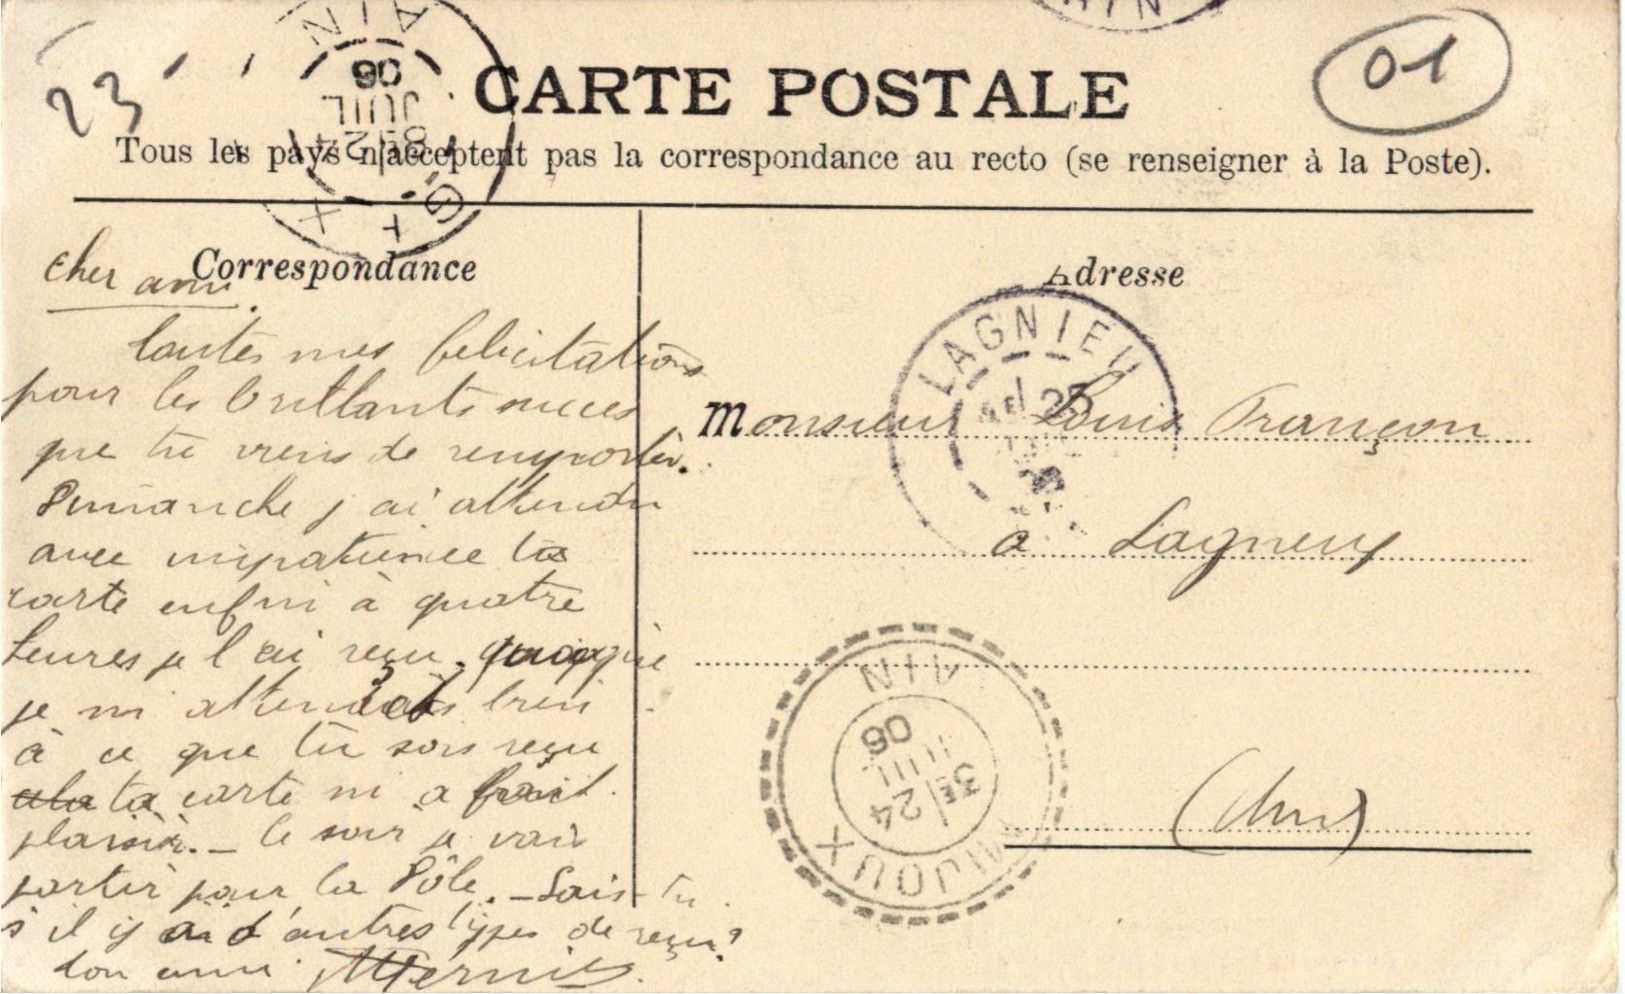 23
01
CARTE POSTALE
Tous les pays n'acceptent pas la correspondance au recto (se renseigner à la Poste).
AIN
24 JUIL 06
GEX
Correspondance
Cher ami.
toutes mes felicitations
pour les brillants succes
que tu viens de remporter.
Dimanche j ai attendu
avec impatience ta
carte enfin à quatre
heures je l ai reçu. quoique
je m attendais bien
à ce que tu sois reçu
ta carte m a fait
plaisir. _ Ce soir je vais
partir pour la Pôle. _ Sais-tu
s'il y a d'autres types de reçu?
ton ami
Adresse
LAGNIEU
Monsieur Louis Françon
à Lagneux
(Ain)
AIN
3E
24
JUIL
06
MIJOUX